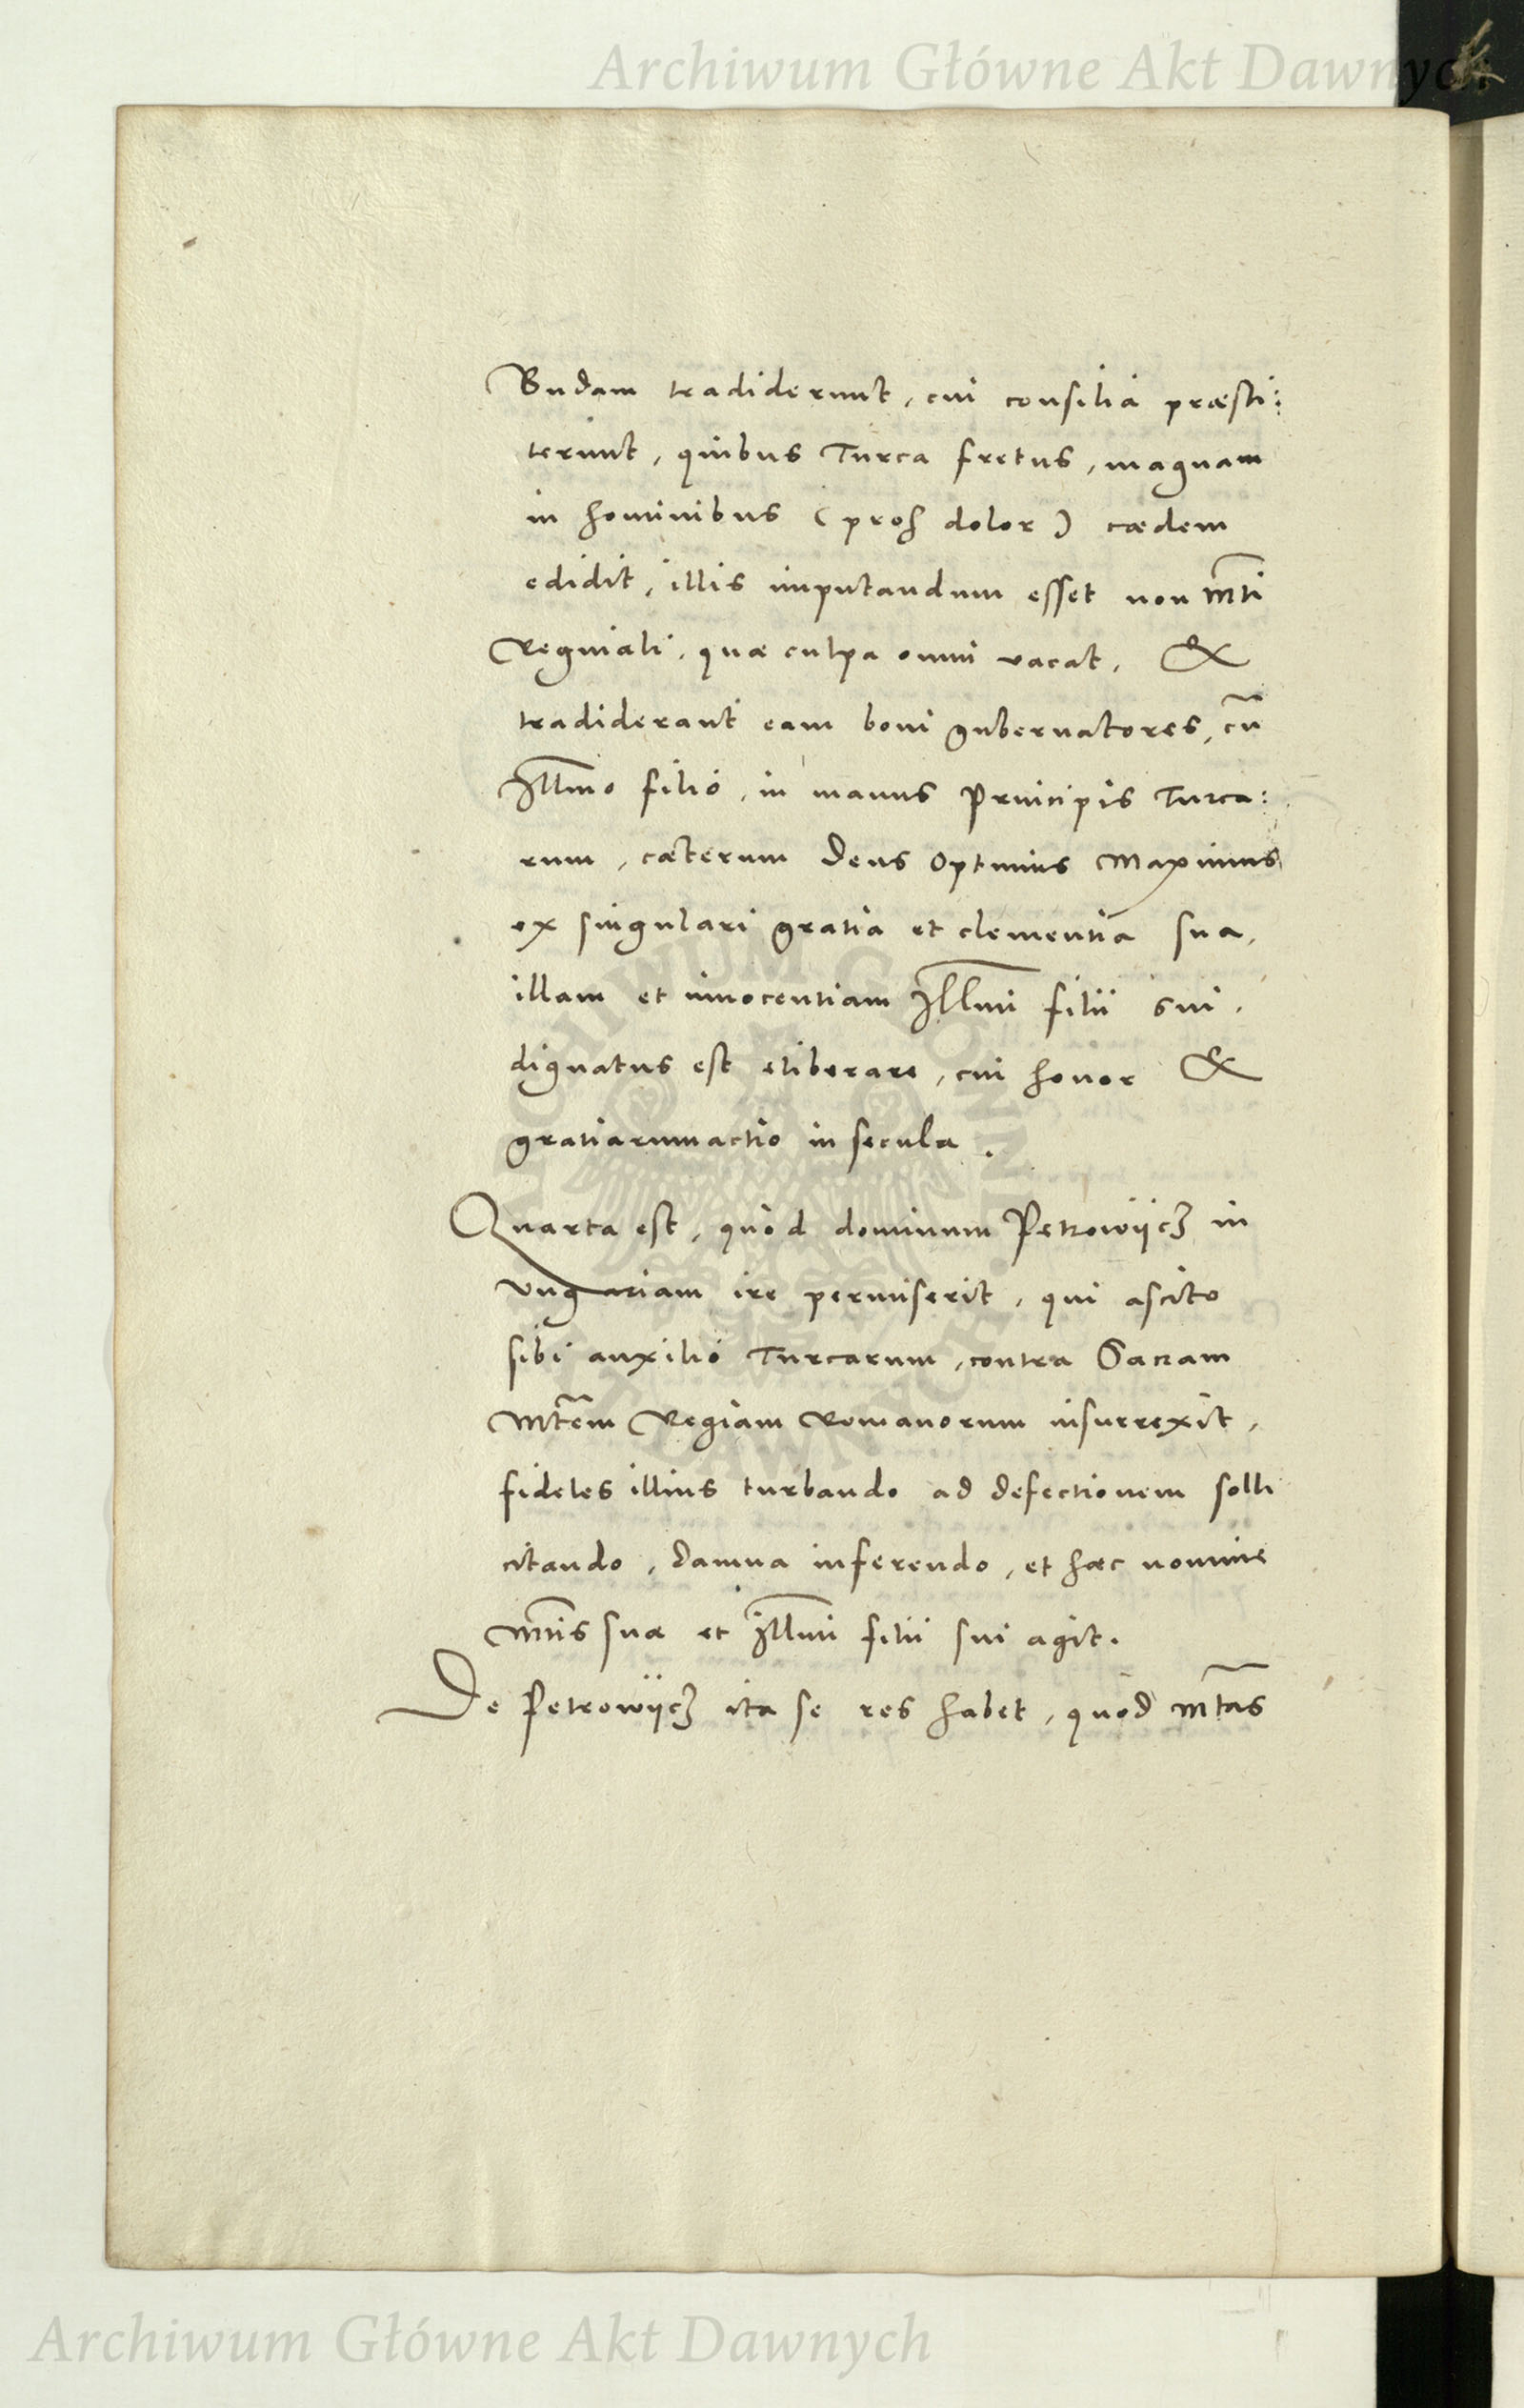 Archiwum Główne Akt Dawnych
Budam tradiderunt, cui consilia præsti:
terunt, quibus Turca fretus, magnam
in hominibus (proh dolor) cædem
edidit, illis imputandum esset non Mti
Reginali, quæ culpa omni vacat, &
tradiderant eam boni gubernatores, cũ
Illmo filio, in manus Principis Turca:
rum, cæterum Deus Optimus Maximus
ex singulari gratia et clementia sua,
illam et innocentiam Illmi filii sui,
dignatus est eliberare, cui honor &
gratiarumactio in secula.
Quarta est, quòd dominum Petrowijcz in
Vngariam ire permiserit, qui ascito
sibi auxilio Turcarum, contra Sacram
Mtem Regiam Romanorum insurrexit,
fideles illius turbando ad defectionem solli
citando, damna inferendo, et hæc nomine
Mtis suæ et Illmi filii sui agit.
De Petrowijcz ita se res habet, quòd Mtas
ARCHIWUM GŁÓWNE AKT DAWNYCH
Archiwum Główne Akt Dawnych